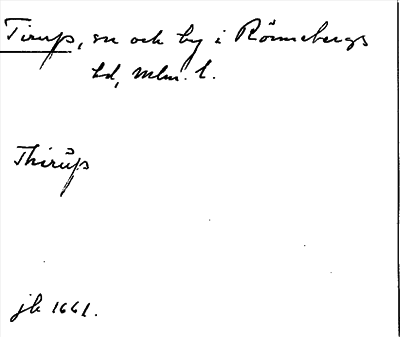 Tirup, sn och by i Rönnebergs
hd, Mlm. l.
Thirŭp
jb 1661.